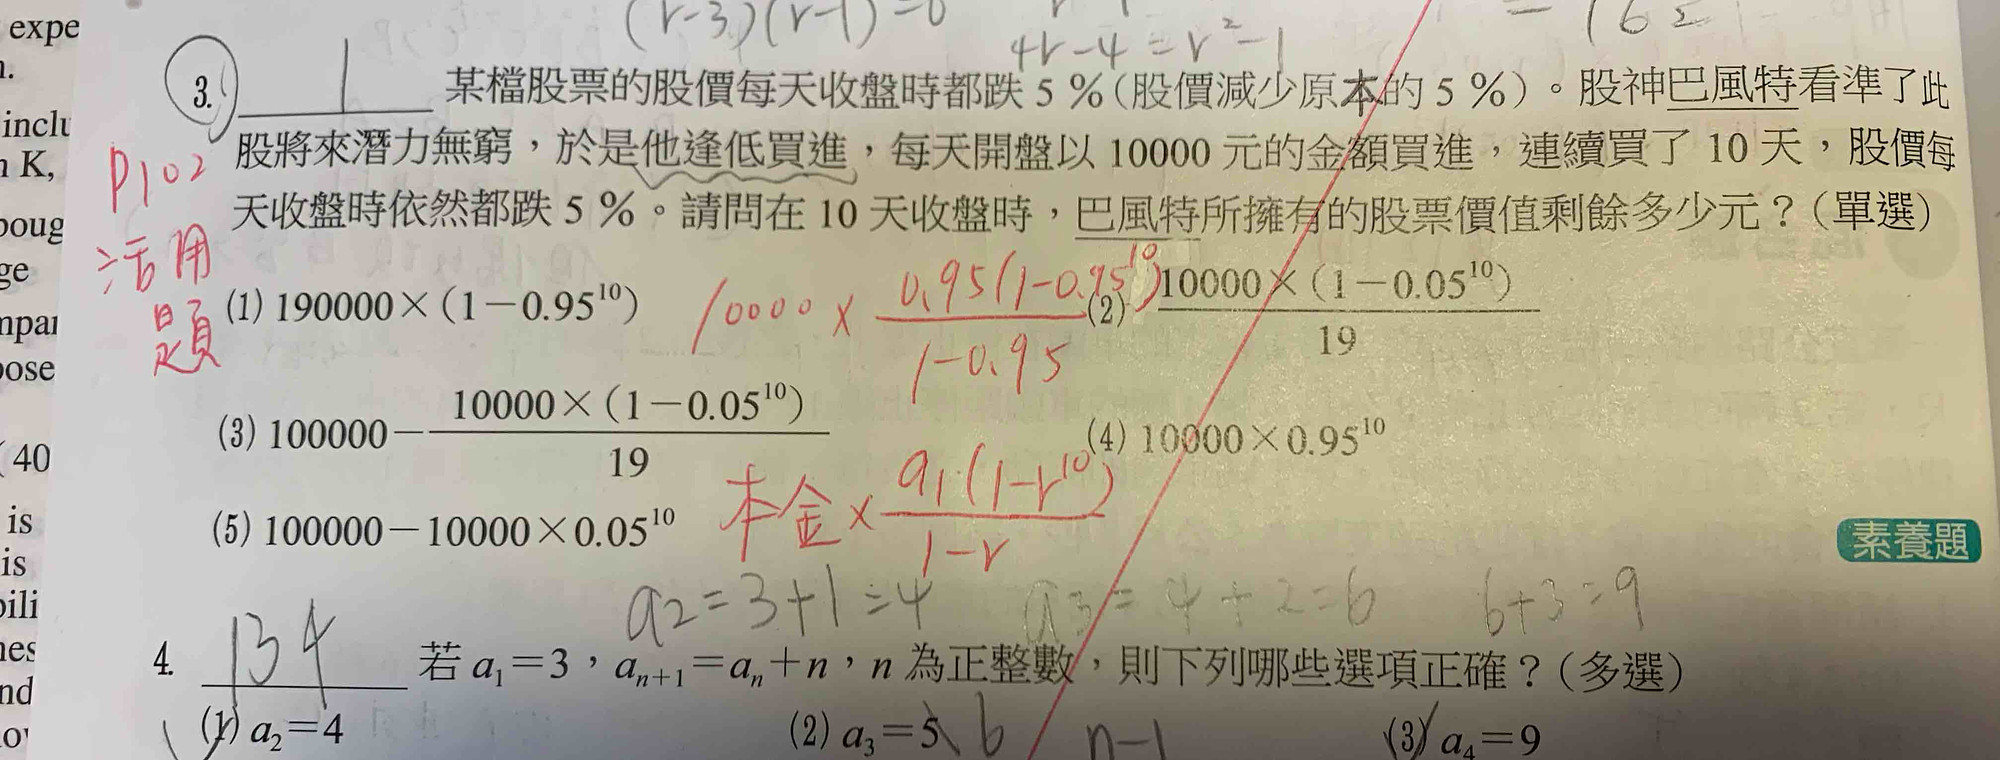 expe
n.
inclu
n K,
boug
ge
mpar
pose
(40
is
is
bili
nes
nd
(r-3)(r-1)=0
4r-4=r²-1
3. 1 某檔股票的股價每天收盤時都跌 5 %(股價減少原本的 5 %)。股神巴風特看準了此
股將來潛力無窮,於是他逢低買進,每天開盤以 10000 元的金額買進,連續買了 10 天,股價每
天收盤時依然都跌 5 %。請問在 10 天收盤時,巴風特所擁有的股票價值剩餘多少元?(單選)
P102
活用
題
(1) 190000×(1-0.95¹⁰)
10000 × 0.95(1-0.95¹⁰) / 1-0.95
(2) 10000×(1-0.05¹⁰) / 19
(3) 100000 - 10000×(1-0.05¹⁰) / 19
(4) 10000×0.95¹⁰
(5) 100000-10000×0.05¹⁰
本金 × a₁(1-r¹⁰) / 1-r
素養題
a2=3+1=4 a3=4+2=6 6+3=9
4. 134 若 a₁=3,aₙ₊₁=aₙ+n,n 為正整數,則下列哪些選項正確?(多選)
(1) a₂=4 (2) a₃=5 6 n-1 (3) a₄=9